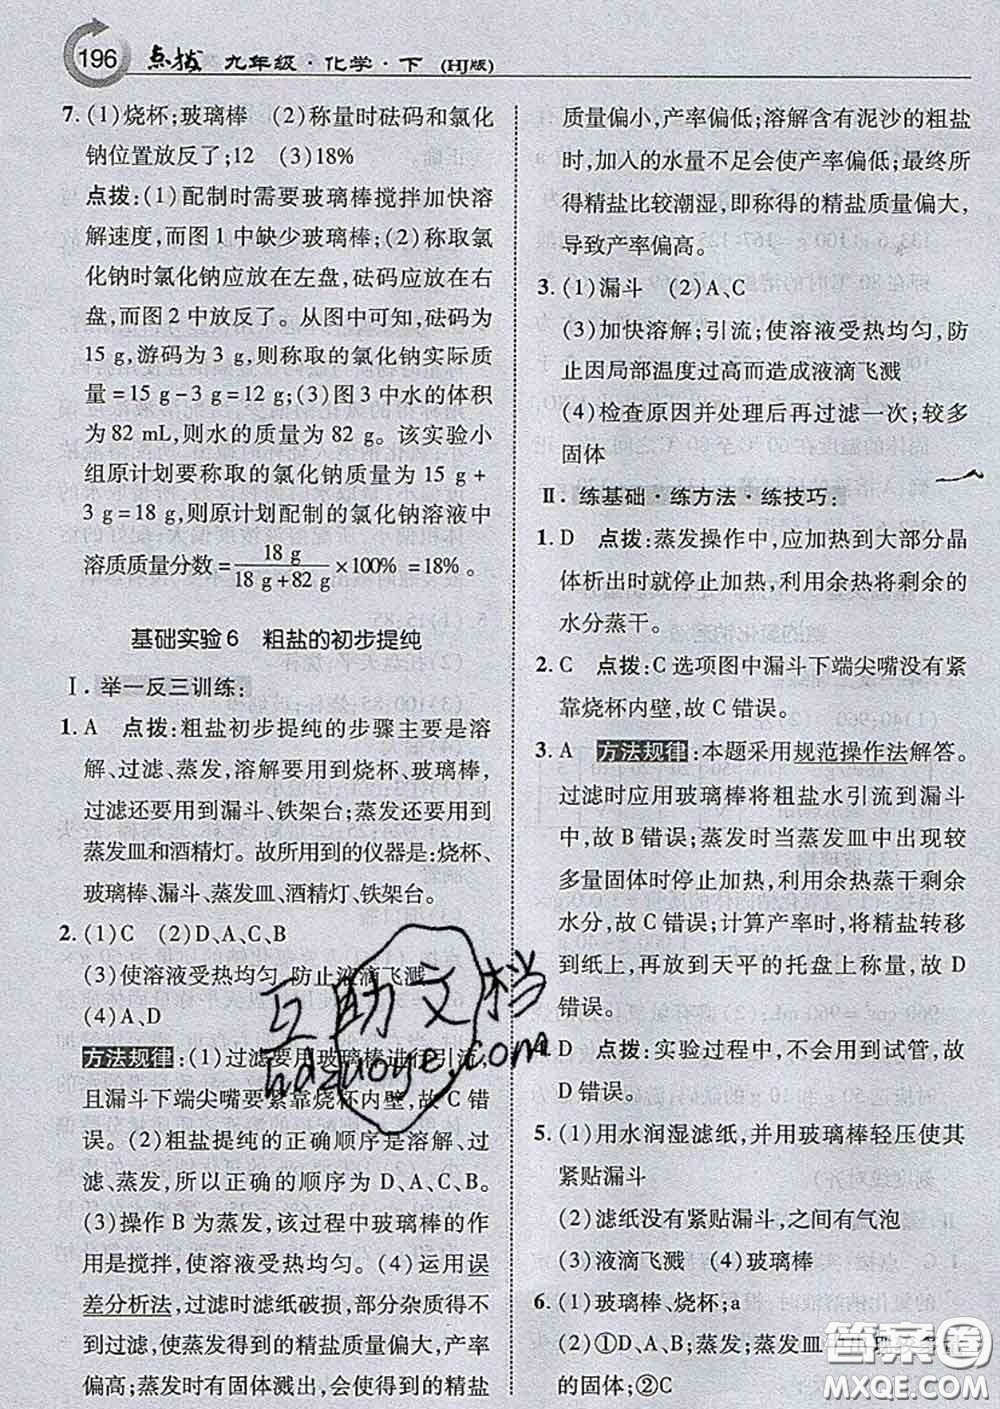 196 点拨 九年级·化学·下 (HJ版)
7. (1)烧杯;玻璃棒 (2)称量时砝码和氯化
钠位置放反了;12 (3)18%
点拨:(1)配制时需要玻璃棒搅拌加快溶
解速度,而图1中缺少玻璃棒;(2)称取氯
化钠时氯化钠应放在左盘,砝码应放在右
盘,而图2中放反了。从图中可知,砝码为
15 g,游码为3 g,则称取的氯化钠实际质
量=15 g-3 g=12 g;(3)图3中水的体积
为82 mL,则水的质量为82 g。该实验小
组原计划要称取的氯化钠质量为15 g+
3 g=18 g,则原计划配制的氯化钠溶液中
溶质质量分数=18 g/(18 g+82 g)×100%=18%。
基础实验6 粗盐的初步提纯
Ⅰ.举一反三训练:
1. A 点拨:粗盐初步提纯的步骤主要是溶
解、过滤、蒸发,溶解要用到烧杯、玻璃棒,
过滤还要用到漏斗、铁架台;蒸发还要用到
蒸发皿和酒精灯。故所用到的仪器是:烧杯、
玻璃棒、漏斗、蒸发皿、酒精灯、铁架台。
2. (1)C (2)D、A、C、B
(3)使溶液受热均匀,防止液滴飞溅
(4)A、D
方法规律:(1)过滤要用玻璃棒进行引流,
且漏斗下端尖嘴要紧靠烧杯内壁,故C错
误。(2)粗盐提纯的正确顺序是溶解、过
滤、蒸发,所以正确的顺序为D、A、C、B。
(3)操作B为蒸发,该过程中玻璃棒的作
用是搅拌,使溶液受热均匀。(4)运用误
差分析法,过滤时滤纸破损,部分杂质得不
到过滤,使蒸发后得到的精盐质量偏大,产率
偏高;蒸发时有固体溅出,会使得到的精盐
质量偏小,产率偏低;溶解含有泥沙的粗盐
时,加入的水量不足会使产率偏低;最终所
得精盐比较潮湿,即称得的精盐质量偏大,
导致产率偏高。
3. (1)漏斗 (2)A、C
(3)加快溶解;引流;使溶液受热均匀,防
止因局部温度过高而造成液滴飞溅
(4)检查原因并处理后再过滤一次;较多
固体
Ⅱ.练基础·练方法·练技巧:
1. D 点拨:蒸发操作中,应加热到大部分晶
体析出时就停止加热,利用余热将剩余的
水分蒸干。
2. C 点拨:C选项图中漏斗下端尖嘴没有紧
靠烧杯内壁,故C错误。
3. A 方法规律:本题采用规范操作法解答。
过滤时应用玻璃棒将粗盐水引流到漏斗
中,故B错误;蒸发时当蒸发皿中出现较
多量固体时停止加热,利用余热蒸干剩余
水分,故C错误;计算产率时,将精盐转移
到纸上,再放到天平的托盘上称量,故D
错误。
4. D 点拨:实验过程中,不会用到试管,故
D错误。
5. (1)用水润湿滤纸,并用玻璃棒轻压使其
紧贴漏斗
(2)滤纸没有紧贴漏斗,之间有气泡
(3)液滴飞溅 (4)玻璃棒
6. (1)玻璃棒、烧杯;a
(2)①D、A、B;蒸发;蒸发皿中出现
的固体;②C
互助文档
hdzuoye.com
答案圈
MXQE.COM